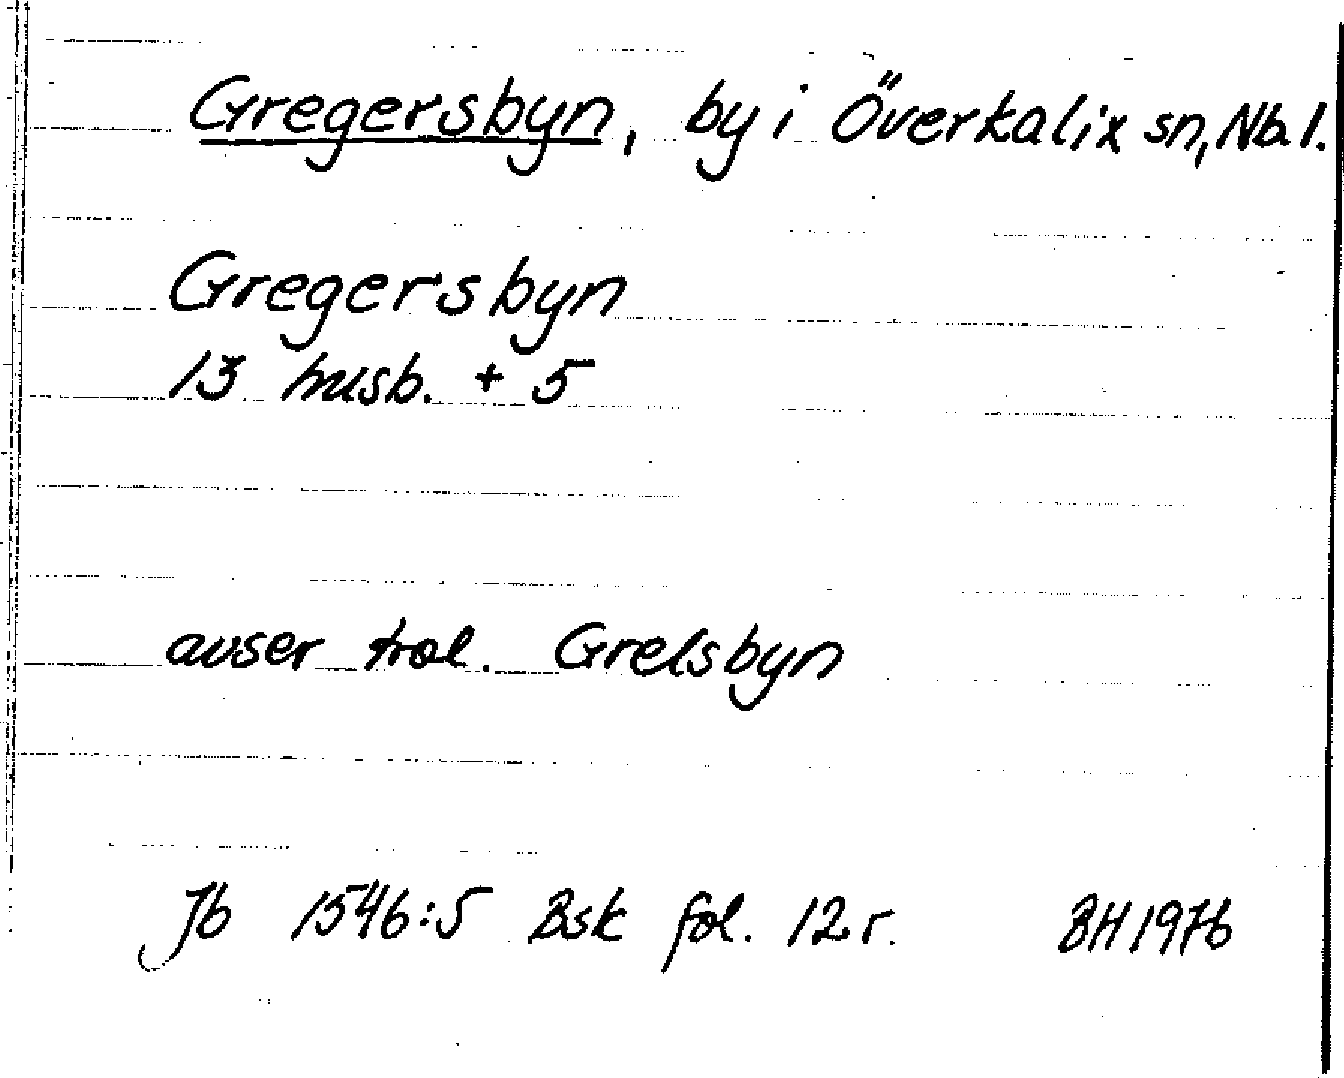 Gregersbyn, by i Överkalix sn, Nb. l.
Gregersbyn
13 husb. + 5
avser trol. Grelsbyn
Jb 1546:5 Bsk fol. 12 r. BH 1976